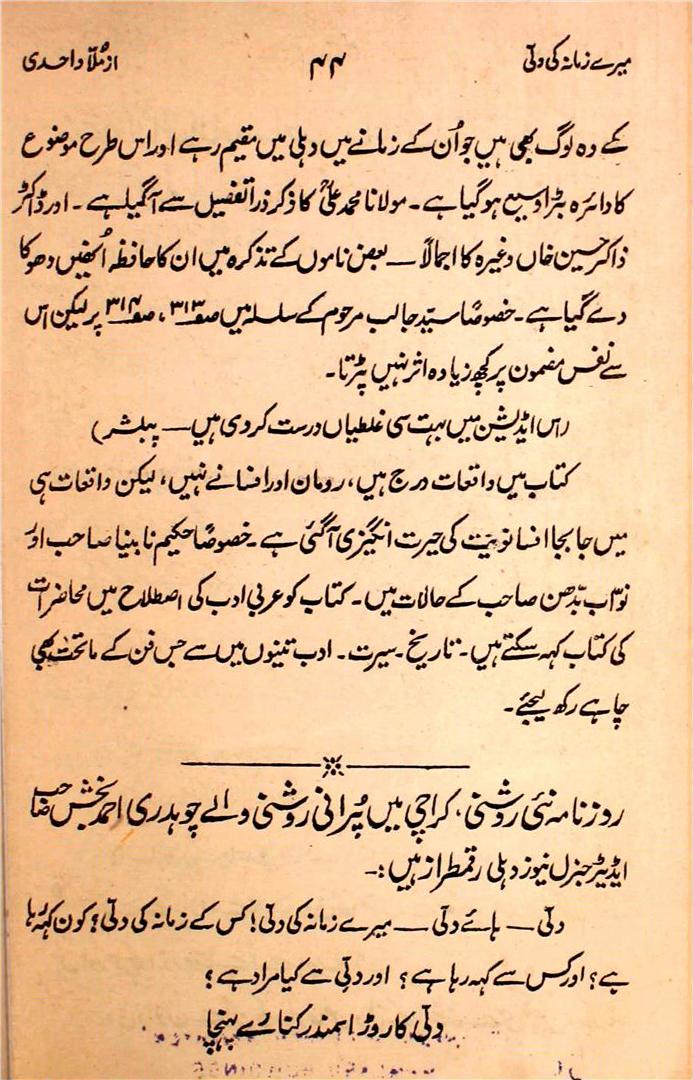 میرے زمانہ کی دلّی ۴۴ از ملّا واحدی
کے وہ لوگ بھی ہیں جو اُن کے زمانے میں دہلی میں مقیم رہے اور اس طرح موضوع
کا دائرہ بڑا وسیع ہوگیا ہے۔ مولانا محمد علیؒ کا ذکر ذرا تفصیل سے آگیا ہے۔ اور ڈاکٹر
ذاکر حسین خاں وغیرہ کا اجمالاً — بعض ناموں کے تذکرہ میں ان کا حافظہ اُنھیں دھوکا
دے گیا ہے۔ خصوصًا سیّد جالب مرحوم کے سلسلہ میں صفحہ ۳۱۳، صفحہ ۳۱۴ پر لیکن اس
سے نفس مضمون پر کچھ زیادہ اثر نہیں پڑتا۔
(اس ایڈیشن میں بہت سی غلطیاں درست کردی ہیں — پبلشر)
کتاب میں واقعات درج ہیں، رومان اور افسانے نہیں، لیکن واقعات ہی
میں جابجا افسانویّت کی حیرت انگیزی آگئی ہے۔ خصوصًا حکیم نابینا صاحب اور
نوّاب بدّھن صاحب کے حالات ہیں۔ کتاب کو عربی ادب کی اصطلاح میں محاضرات
کی کتاب کہہ سکتے ہیں۔ تاریخ۔ سیرت۔ ادب تینوں میں سے جس فن کے ماتحت بھی
چاہے رکھ لیجئے۔
روزنامہ نئی روشنی، کراچی میں پُرانی روشنی والے چوہدری احمد بخش صاحب
ایڈیٹر جنرل نیوز دہلی رقمطراز ہیں :۔
دلّی — ہائے دلّی — میرے زمانہ کی دلّی! کس کے زمانہ کی دلّی؟ کون کہہ رہا
ہے؟ اور کس سے کہہ رہا ہے؟ اور دلّی سے کیا مراد ہے؟
دلّی کا روڑا سمندر کنارے پہنچا